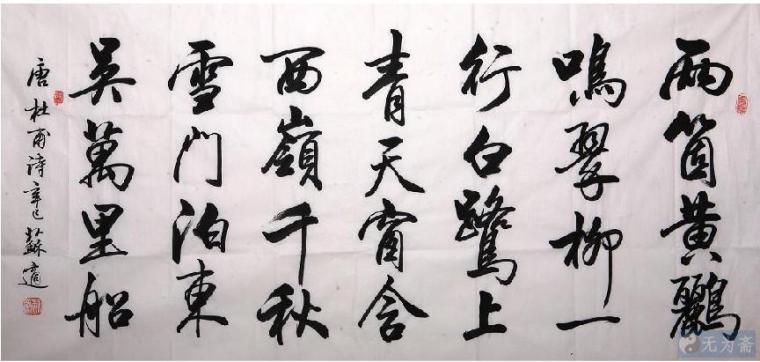 兩箇黄鸝
鳴翠柳一
行白鷺上
青天窗含
西嶺千秋
雪門泊東
吴萬里船
唐杜甫詩辛巳蘇適
无为斋